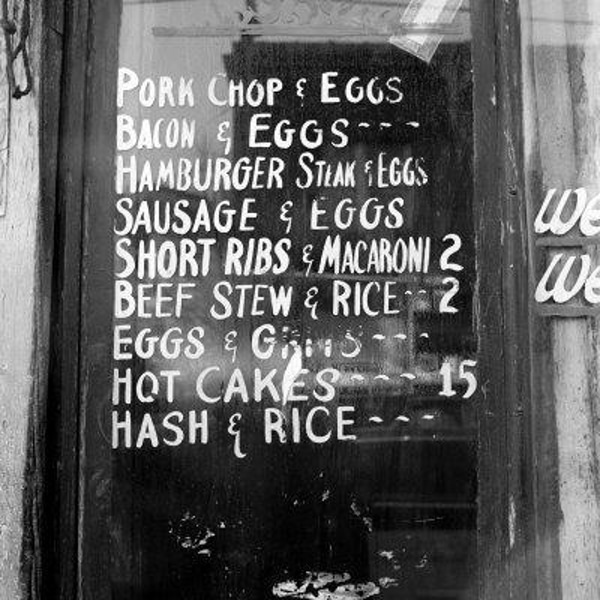 PORK CHOP & EGGS
BACON & EGGS - - -
HAMBURGER STEAK & EGGS
SAUSAGE & EGGS
SHORT RIBS & MACARONI 2
BEEF STEW & RICE - - 2
EGGS & GRITS - - -
HOT CAKES - - - - 15
HASH & RICE - - -
we
we